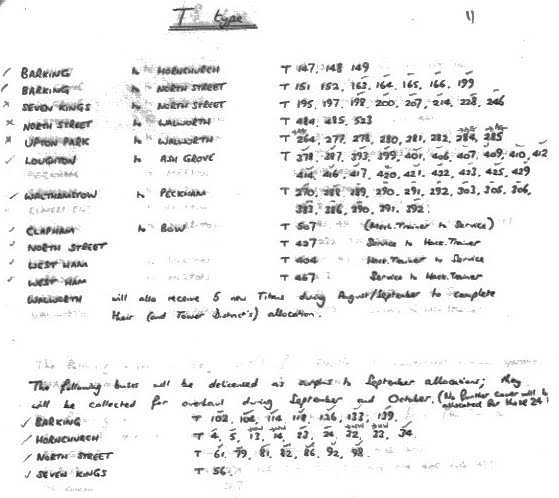 T type
11
✓ BARKING to HORNCHURCH T 147, 148 149
✓ BARKING to NORTH STREET T 151 152, 163, 164, 165, 166, 199
x SEVEN KINGS to NORTH STREET T 195, 197, 198, 200, 207, 214, 228, 246
x NORTH STREET to WALWORTH T 484, 485, 523
x UPTON PARK to WALWORTH T 264, 277, 278, 280, 281, 282, 284, 285
✓ LOUGHTON to ASH GROVE T 378, 387, 393, 399, 401, 406, 407, 409, 410, 412
414, 416, 417, 420, 421, 422, 423, 425, 429
✓ WALTHAMSTOW to PECKHAM T 270, 288, 289, 290, 291, 292, 303, 305, 306,
383, 386, 390, 391, 392.
✓ CLAPHAM to BOW T 507 (Mech. Trainer to Service)
✓ NORTH STREET T 427 Service to Mech. Trainer
✓ WEST HAM T 404 Mech. Trainer to Service
✓ WEST HAM T 467 Service to Mech. Trainer
WALWORTH will also receive 5 new Titans during August/September to complete
their (and Tower District's) allocation.
The following buses will be delicensed as surplus to September allocations; they
will be collected for overhaul during September and October. (No further cover will be
allocated for these 24)
✓ BARKING T 102, 104, 114, 118, 126, 133, 139.
✓ HORNCHURCH T 4, 5, 13, 14, 23, 24, 32, 33, 34
✓ NORTH STREET T 61, 79, 81, 82, 86, 92, 98.
✓ SEVEN KINGS T 56.